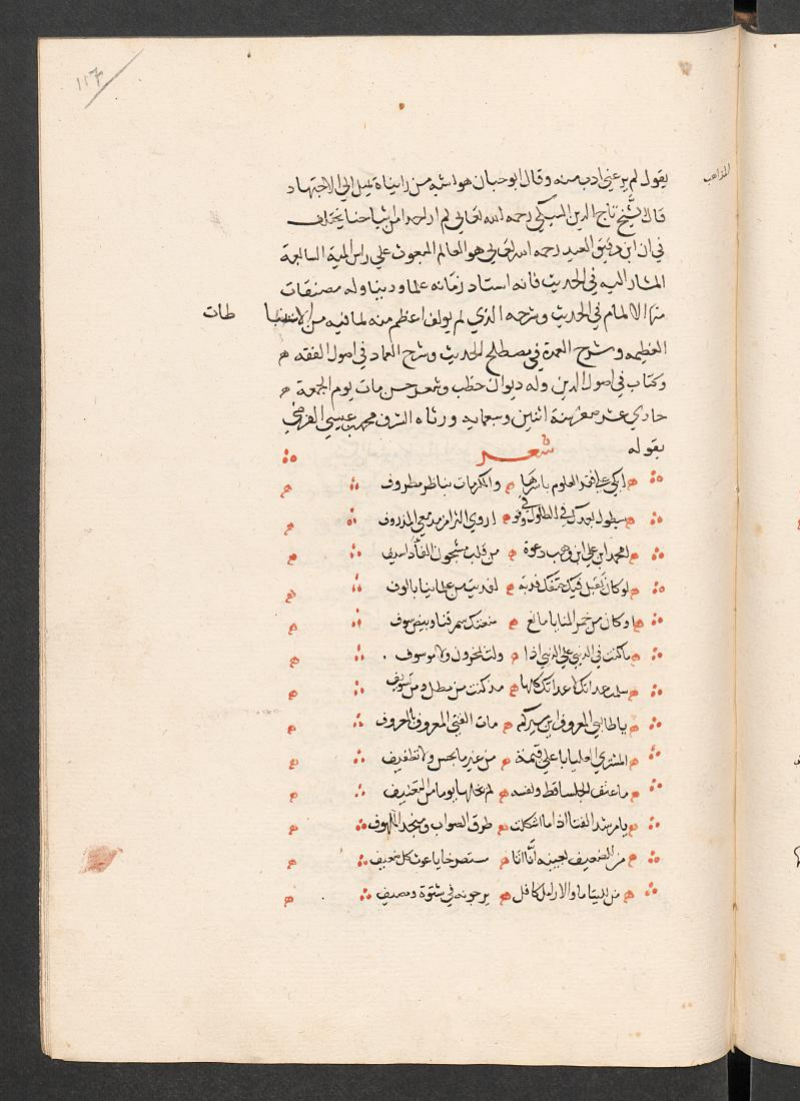 ١١٧
المذاهب
يقول لم ير عيني ادب منه وقال ابو حيان هو اشبه من رايناه يميل الي الاجتهاد
قال الشيخ تاج الدين السبكي رحمه الله تعالى لم ار احدا من اشياخنا يختلف
في ان ابن دقيق العيد رحمه الله تعالى هو العالم المبعوث علي راس المية السابعة
المشار اليه في الحديث فانه استاد زمانه علما ودينا وله مصنفات
منها الالمام في الحديث وشرحه الذي لم يولف اعظم منه لما فيه من الاستنباطات
العظيمه وشرح العمدة في مصطلح الحديث وشرح العماد في اصول الفقه
وكتاب في اصول الدين وله ديوان خطب وشعر حسن مات يوم الجمعة
حادي عشر صفر سنة اثنين وسبعمايه ورثاه الشرف محمد بن عيسي
بقوله
شعر
ابكي علي فقد العلوم باسرها والمكرمات بناظر مطروف
سيطول بعدك في الطلول وقوفي اروي الثرا من مدمعي المذروف
لمحمد ابن علي ابن وهب دعوة من قلب مسجون الفؤاد اسيف
لو كان يقبل فيك حتفك فدية لفديت من علمائنا بالوف
او كان من خمر المنايا مانع منعتك سمر قنا وبيض سيوف
ما كنت في الدنيا علي الدنيا اذا ولت بمحزون ولا موسوف
سلمت عداتك لا عداتك كلها مذ كنت من مطل ومن تسويف
يا طالبي المعروف اين مسيركم مات الفتي المعروف بالمعروف
المشتري العليا باعلي قيمة من غير ما بخس ولا تطفيف
ما عنف الجلسا قط ونفسه لم يخلها يوما من التعنيف
يا مرشد الفتيا اذا ما اشكلت طرق الصواب ومنجد الملهوف
من للضعيف يعينه انّا اتا مستصرخا يا غوث كل ضعيف
من لليتاما والارامل كافل يرجونه في شتوة ومصيف